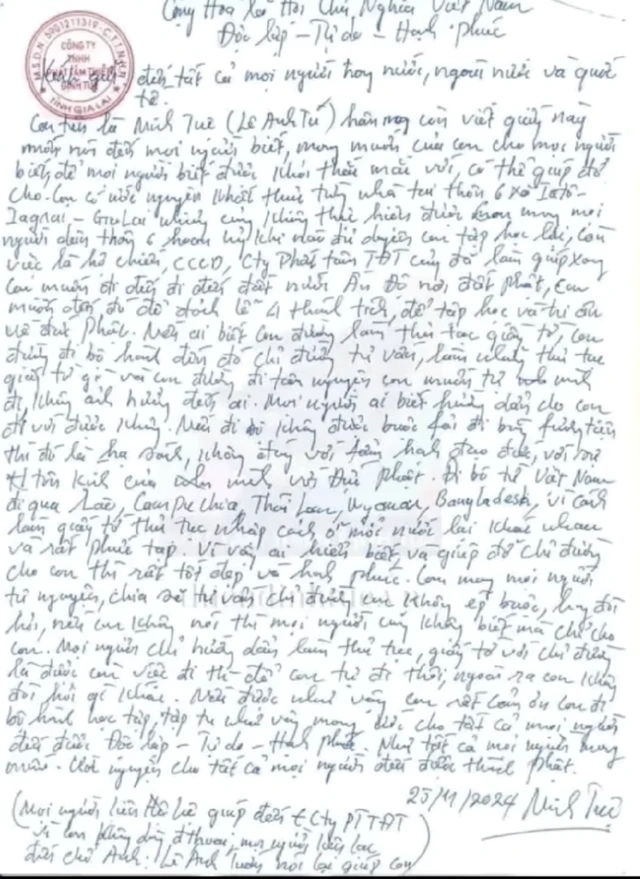 Cộng Hoà Xã Hội Chủ Nghĩa Việt Nam
Độc lập – Tự do – Hạnh Phúc
M.S.D.N: 5901211319 - C.T.T.N.H.H
CÔNG TY
TNHH
TỈNH GIA LAI
Kính gửi đến tất cả mọi người trong nước, ngoài nước và quốc
tế.
Con tên là Minh Tuệ (Lê Anh Tú) hôm nay con viết giấy này
muốn nói đến mọi người biết, mong muốn của con cho mọi người
biết để mọi người biết được khỏi thắc mắc với, có thể giúp đỡ
cho. Con có ước nguyện khất thực từng nhà tại thôn 6 xã Iatô-
Iagrai - Gialai nhưng cũng không thực hiện được mong mọi
người dân thôn 6 hoan hỷ khi nào đủ duyên con tập học lại, còn
việc là hộ chiếu, CCCD, Cty Phát tâm TĐT cũng đã làm giúp xong
Con muốn đi đến đất nước Ấn Độ nơi đất phật, con
muốn đến đó để đảnh lễ 4 thánh tích, để tập học và tri ân
về đức Phật. Nên ai biết con đường làm thủ tục giấy tờ, con
đường đi bộ hành đến đó chỉ đường tư vấn, làm những thủ tục
giấy tờ gì và con đường đi tâm nguyện con muốn tự mình
đi, không ảnh hưởng đến ai. Mọi người ai biết hướng dẫn cho con
đi với được không. Nếu đi bộ không được bước phải đi bằng phương tiện
thì đó là hạ sách, không đúng với tâm hạnh đạo đức, với sự
tôn kính của mình với Đức Phật. Đi bộ từ Việt Nam
đi qua Lào, Campuchia, Thái Lan, Myanmar, Bangladesh, vì cách
làm giấy tờ thủ tục nhập cảnh ở mỗi nước lại khác nhau
và rất phức tạp. Vì vậy ai hiểu biết và giúp đỡ chỉ đường
cho con thì rất tốt đẹp và hạnh phúc. Con mong mọi người
tự nguyện, chia sẻ tư vấn chỉ đường con không ép buộc, hay đòi
hỏi, nếu con không nói thì mọi người cũng không biết mà chỉ cho
con. Mọi người chỉ hướng dẫn làm thủ tục, giấy tờ với chỉ đường
là được còn việc đi thì để con tự đi thôi, ngoài ra con không
đòi hỏi gì khác. Nếu được như vậy con rất cảm ơn con đi
bộ hành học tập, tập tu như vậy mong ước cho tất cả mọi người
đều được Độc lập – Tự do – Hạnh Phúc. Như tất cả mọi người mong
muốn. Ước nguyện cho tất cả mọi người đều được thành phật.
25/11/2024 Minh Tuệ
(Mọi người liên hệ giúp đến Cty PTTĐT
vì con không dùng đ.thoại, mọi người liên lạc
đến chú Anh: Lê Anh Tuấn nói lại giúp con)